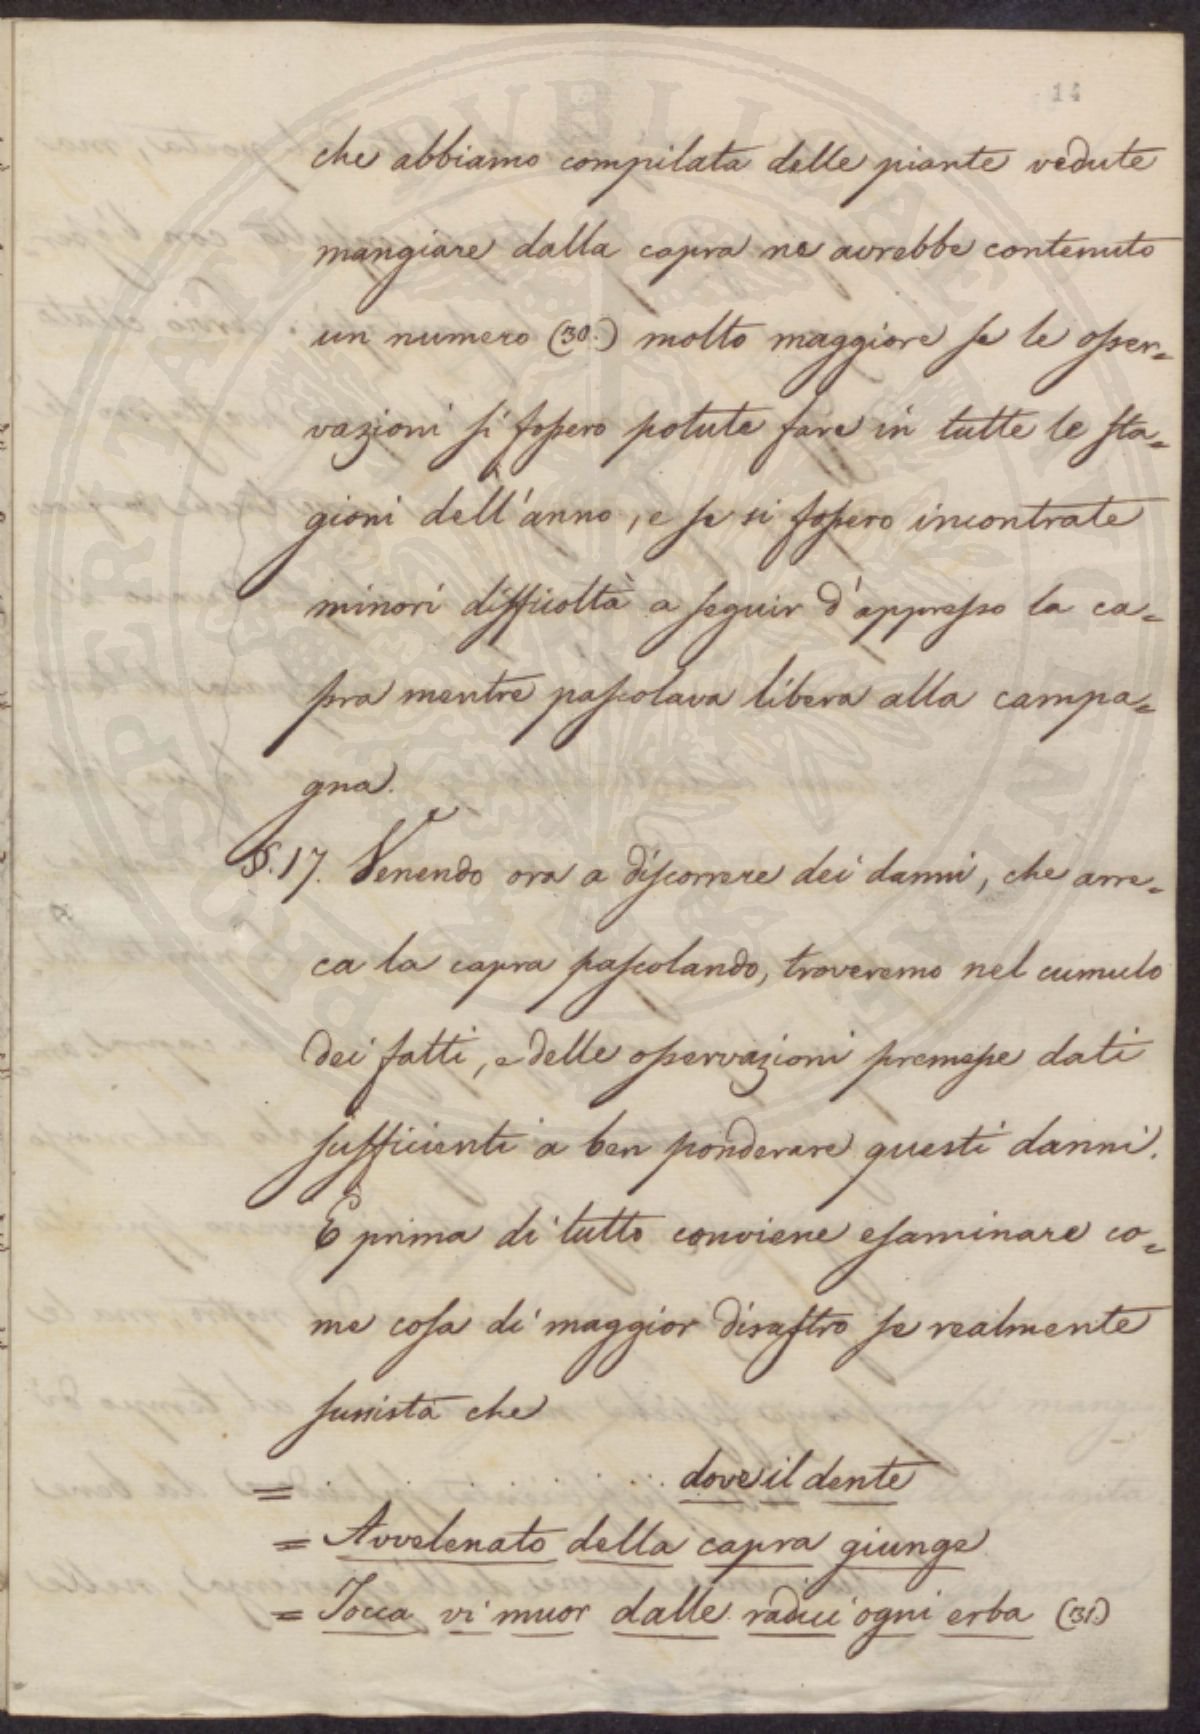 14
che abbiamo compilata delle piante vedute
mangiare dalla capra ne avrebbe contenuto
un numero (30.) molto maggiore se le osser=
vazioni si fossero potute fare in tutte le sta=
gioni dell'anno, e se si fossero incontrate
minori difficoltà a seguir d'appresso la ca=
pra mentre pascolava libera alla campa=
gna.
§. 17. Venendo ora a discorrere dei danni, che arre=
ca la capra pascolando, troveremo nel cumulo
dei fatti, e delle osservazioni premesse dati
sufficienti a ben ponderare questi danni.
E prima di tutto conviene esaminare co=
me cosa di maggior disastro se realmente
sussista che
= . . . . . . . . dove il dente
= Avvelenato della capra giunge
= Tocca vi muor dalle radici ogni erba (31.)
PROSPERITATI PVBLICAE